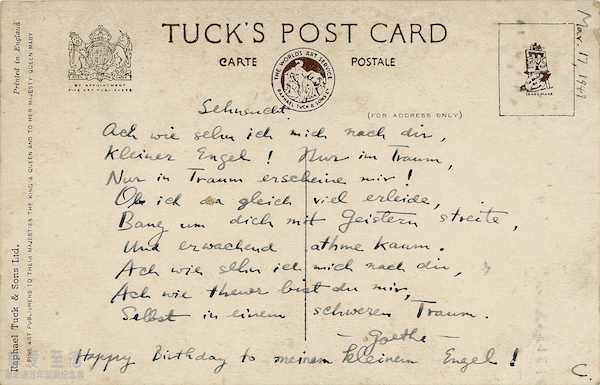 TUCK'S POST CARD
CARTE POSTALE
BY APPOINTMENT
FINE ART PUBLISHERS
THE WORLD'S ART SERVICE
RAPHAEL TUCK & SONS LTD
(FOR ADDRESS ONLY)
TRADE MARK
Mar. 17, 19
Printed in England
FINE ART PUBLISHERS TO THEIR MAJESTIES THE KING & QUEEN AND TO HER MAJESTY QUEEN MARY
Raphael Tuck & Sons Ltd.
Sehnsucht.
Ach wie sehn ich mich nach dir,
Kleiner Engel! Nur im Traum,
Nur in Traum erscheine mir!
Ob ich da gleich viel erleide,
Bang um dich mit Geistern streite,
Und erwachend athme kaum.
Ach wie sehn ich mich nach dir,
Ach wie theuer bist du mir,
Selbst in einem schweren Traum.
- Goethe -
Happy Birthday to meinem kleinem Engel!
C.